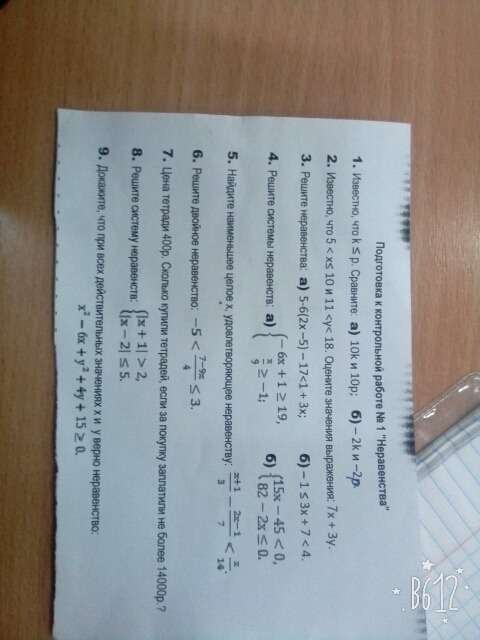 Подготовка к контрольной работе № 1 "Неравенства"
1. Известно, что k ≤ p. Сравните: а) 10k и 10p; б) – 2k и –2p.
2. Известно, что 5 < x ≤ 10 и 11 <y< 18. Оцените значения выражения: 7x + 3y.
3. Решите неравенства: а) 5-6(2x –5) – 17<1 + 3x; б) – 1 ≤ 3x + 7 < 4.
4. Решите системы неравенств: а) { – 6x + 1 ≥ 19, x/9 ≥ –1; б) { 15x – 45 < 0, 82 – 2x ≤ 0.
5. Найдите наименьшее целое x, удовлетворяющее неравенству: (x+1)/3 – (2x–1)/7 < x/14.
6. Решите двойное неравенство: –5 < (7–9x)/4 ≤ 3.
7. Цена тетради 400р. Сколько купили тетрадей, если за покупку заплатили не более 14000р.?
8. Решите систему неравенств: { |x + 1| > 2, |x – 2| ≤ 5.
9. Докажите, что при всех действительных значениях x и y верно неравенство:
x² – 6x + y² + 4y + 15 ≥ 0.
B612